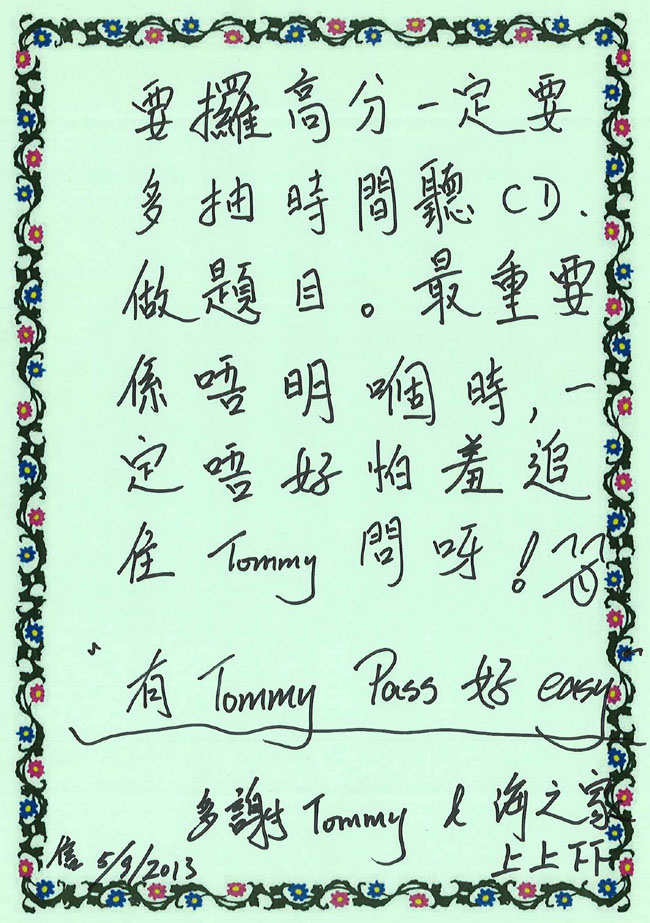 要攞高分一定要
多抽時間聽CD.
做題目。最重要
係唔明嗰時,一
定唔好怕羞追
住 Tommy 問呀!
"有 Tommy Pass 好 easy"
多謝 Tommy & 海之家
上上下下
5/9/2013